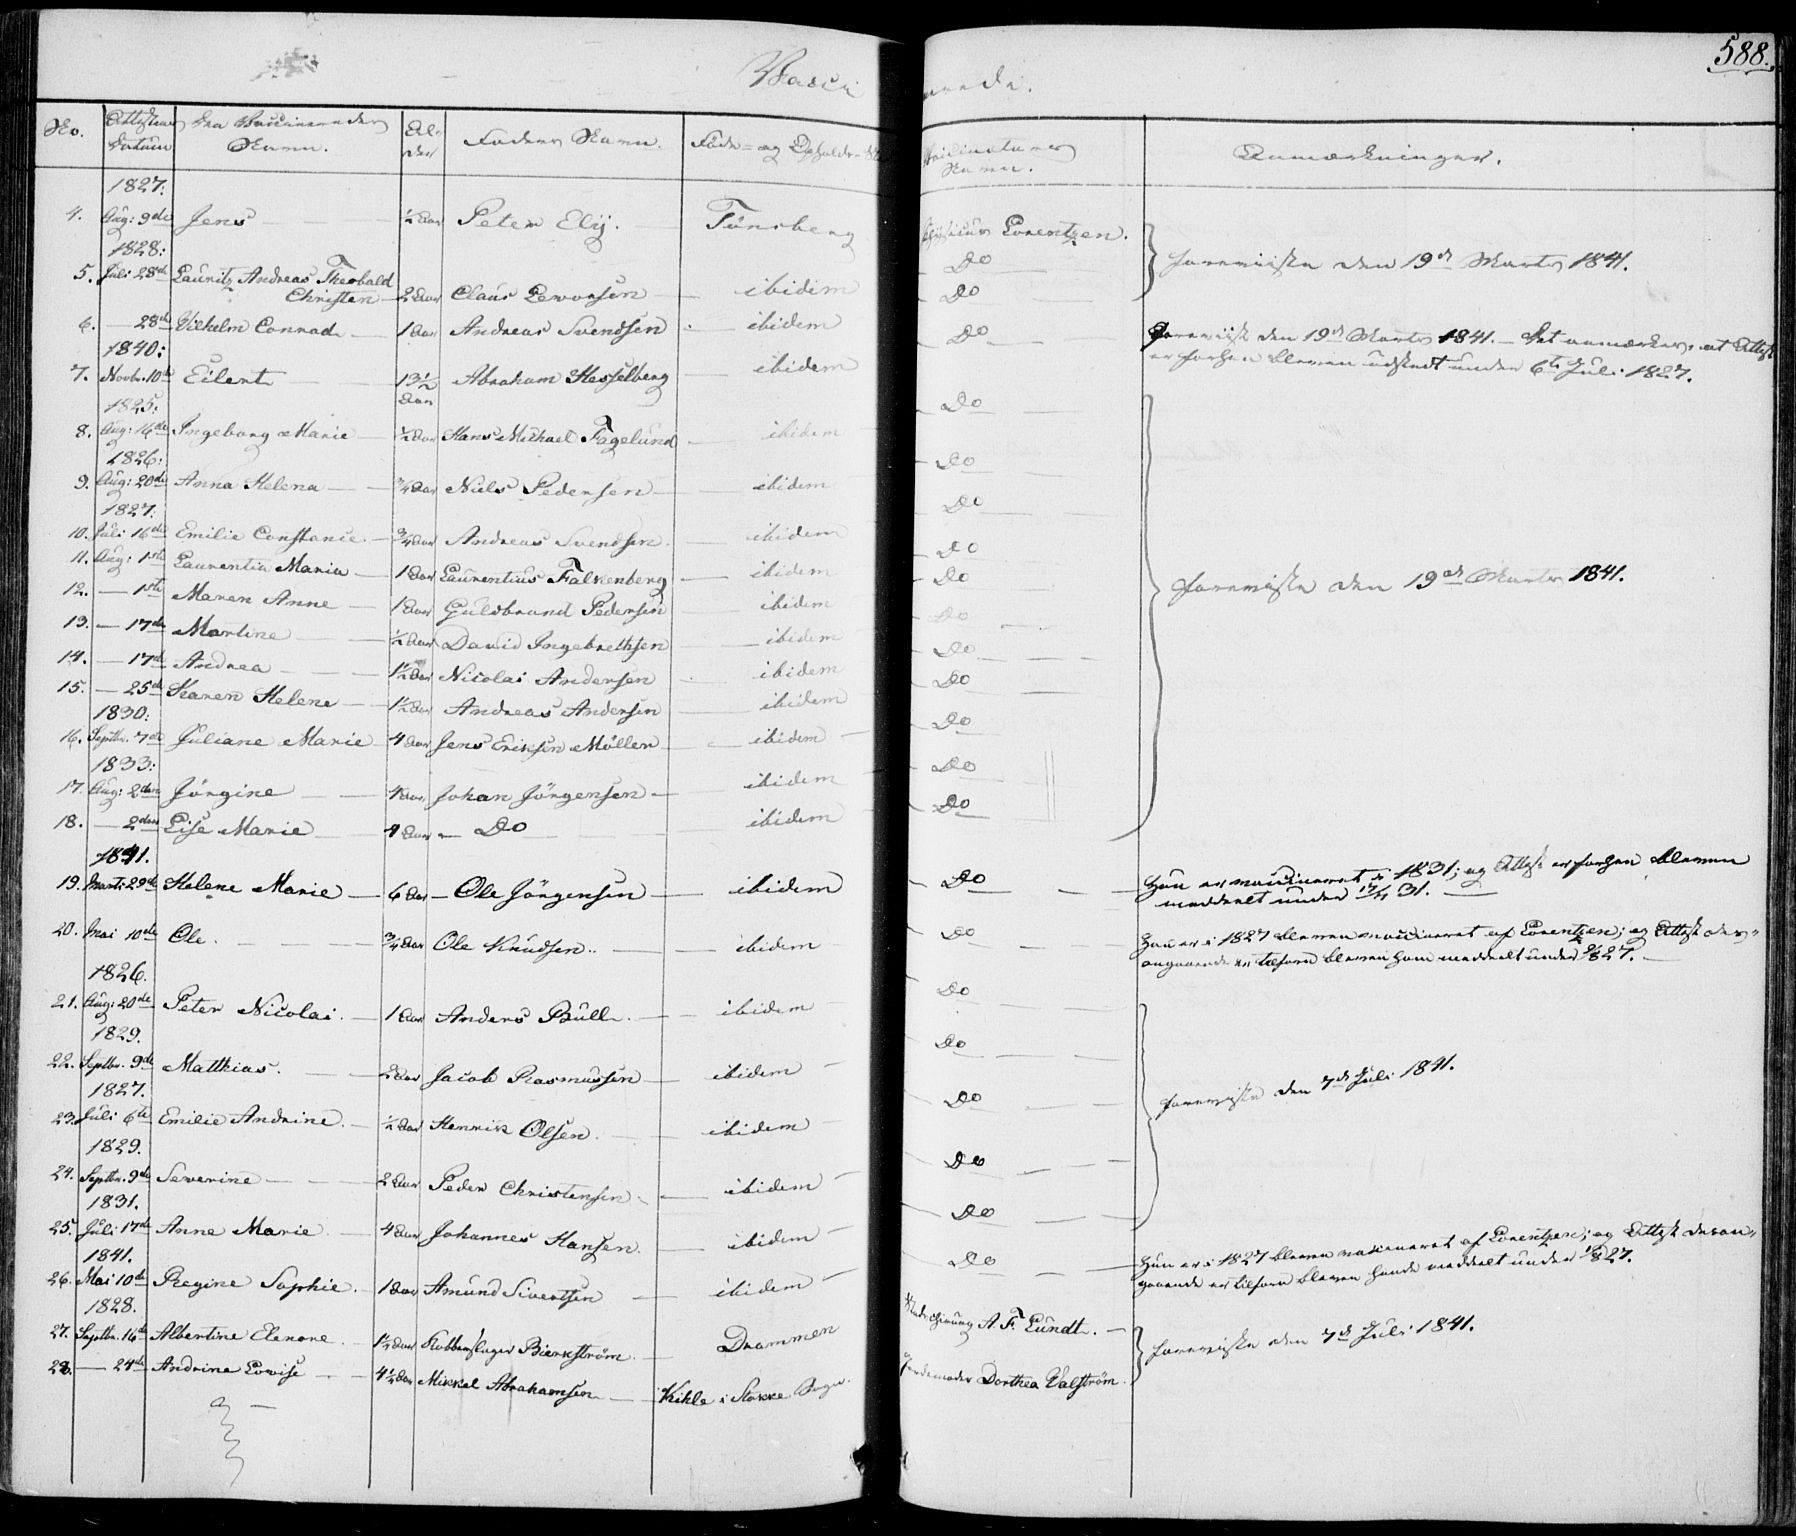 588.
Vacci nerede.
No. Attestens Datum De Vaccineredes Navn. Al- der Faders Navn. Føde- og Opholds-Sted Vaccinateurens Navn. Anmærkninger.
1827.
4. Aug: 9de Jens ½ Aar Peter Ely. Tönsberg Physicus Lorentzen.
1828:
foreviiste den 19de Marts 1841.
5. Juli 28de Lauritz Andreas Theobald Do
Christen 2 Aar Claus Leworsen ibidem Do
6. — 28de Vilhelm Conrad 1 Aar Andreas Svendsen ibidem Do Foreviist den 19de Marts 1841. — Det anmærkes, at Attest
1840:
er forhen bleven udstedt under 6te Juli 1827.
7. Novbr. 10de Eilert 13½ Aar Abraham Hesselberg ibidem Do
1825:
8. Aug: 16de Ingeborg Marie ½ Aar Hans Michael Fagelund ibidem Do
1826:
9. Aug: 20de Anna Helena ¾ Aar Niels Pedersen ibidem Do
1827.
10. Juli 16de Emilie Constance. ¾ Aar Andreas Svendsen. ibidem Do
11. Aug: 1ste Laurentia Maria 1 Aar Laurentius Falkenberg ibidem Do foreviste den 19de Marts 1841.
12. — 1ste Maren Anne 1 Aar Guldbrand Pedersen ibidem Do
13. — 17de Martine ½ Aar David Ingebrethsen ibidem Do
14. — 17de Andrea 1½ Aar Nicolai Andersen ibidem Do
15. — 25de Karen Helene 1½ Aar Andreas Andersen ibidem Do
1830:
16. Septbr. 7de Juliane Marie 4 Aar Jens Eriksen Möller ibidem Do
1833:
17. Aug: 2den Jörgine 4 Aar Johan Jörgensen ibidem Do
18. — 2den Lise Marie 4 Aar Do ibidem
1841.
19. Marts: 29de Helene Marie 6 Aar Ole Jörgensen ibidem Do Hun er vaccineret i 1831; og Attest er forhen bleven
meddelt under 31.
20. Mai 10de Ole. ¾ Aar Ole Knudsen. ibidem Do Han er i 1827 bleven vaccineret af Lorentzen; og Attest des-
angaaende er tilforn bleven ham meddelt under 27.
1826.
21. Aug: 20de Peter Nicolai. 1 Aar Anders Bull. ibidem Do
1829.
22. Septbr. 9de Matthias. 2 Aar Jacob Rasmussen ibidem Do
1827.
foreviste den 7de Juli 1841.
23. Juli 6te Emilie Andrine. ½ Aar Henrik Olsen. ibidem Do
1829.
24. Septbr. 9de Severine 2 Aar Peder Christensen ibidem Do
1831.
25. Juli 17de Anne Marie. 4 Aar Johannes Hansen. ibidem Do
1841.
26. Mai 10de Regine Sophie. 1 Aar Amund Sivertsen ibidem Do Hun er i 1827 bleven vaccineret af Lorentzen; og Attest desan-
gaaende er tilforn bleven hende meddelt under 27.
1828.
27. Septbr. 16de Albertine Elenore. 1½ Aar Kobberslager Bierkström. Drammen A. F. Lundt. foreviste den 7de Juli 1841.
28. — 24de Andrine Lovise 4½ Aar Mikkel Abrahamsen Kihle i Stokke Sogn. Jordemoder Dorthea Valström.